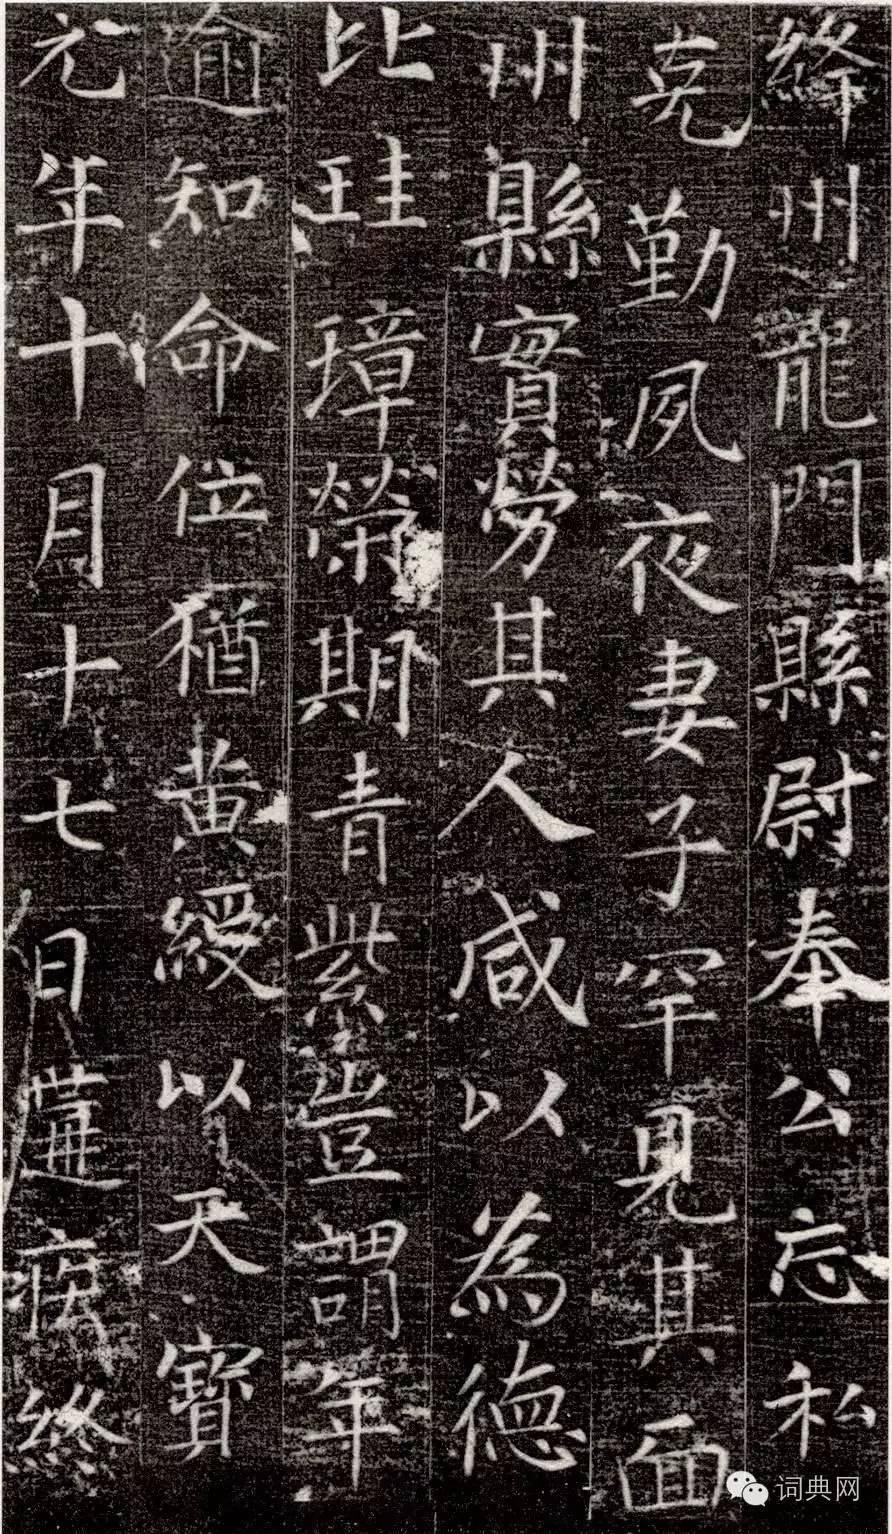 絳州龍門縣尉奉公忘私
克勤夙夜妻子罕見其面
州縣實勞其人咸以為德
比珪璋榮期青紫豈謂年
逾知命位猶黃綬以天寶
元年十月十七日遘疾終
词典网